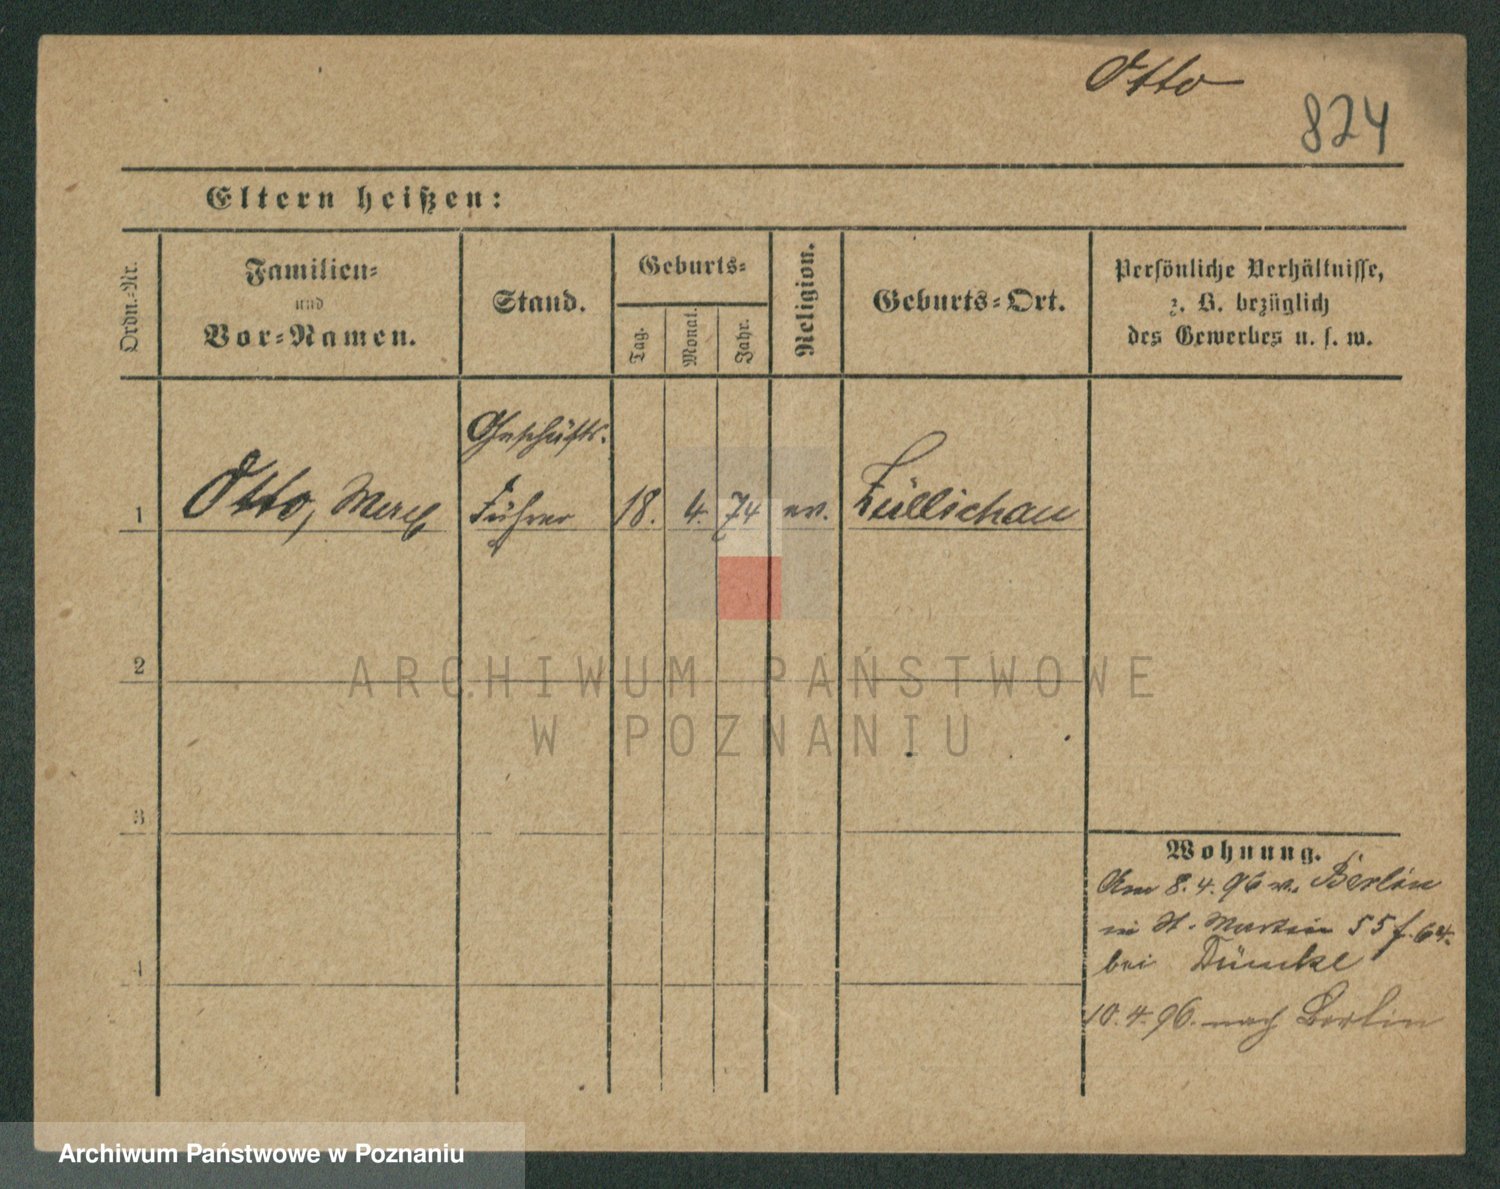 Otto
824
Eltern heißen:
Ordn.-Nr.
Familien-
und
Vor-Namen.
Stand.
Geburts-
Tag.
Monat.
Jahr.
Religion.
Geburts-Ort.
Persönliche Verhältnisse,
z. B. bezüglich
des Gewerbes u. s. w.
Geschäfts-
1 Otto, Führer 18. 4. 74 ev. Züllichau
2
3
4
Wohnung.
Am 8.4.96 v. Berlin
in St. Martin 55
bei
10.4.96. nach Berlin
ARCHIWUM PAŃSTWOWE
W POZNANIU
Archiwum Państwowe w Poznaniu